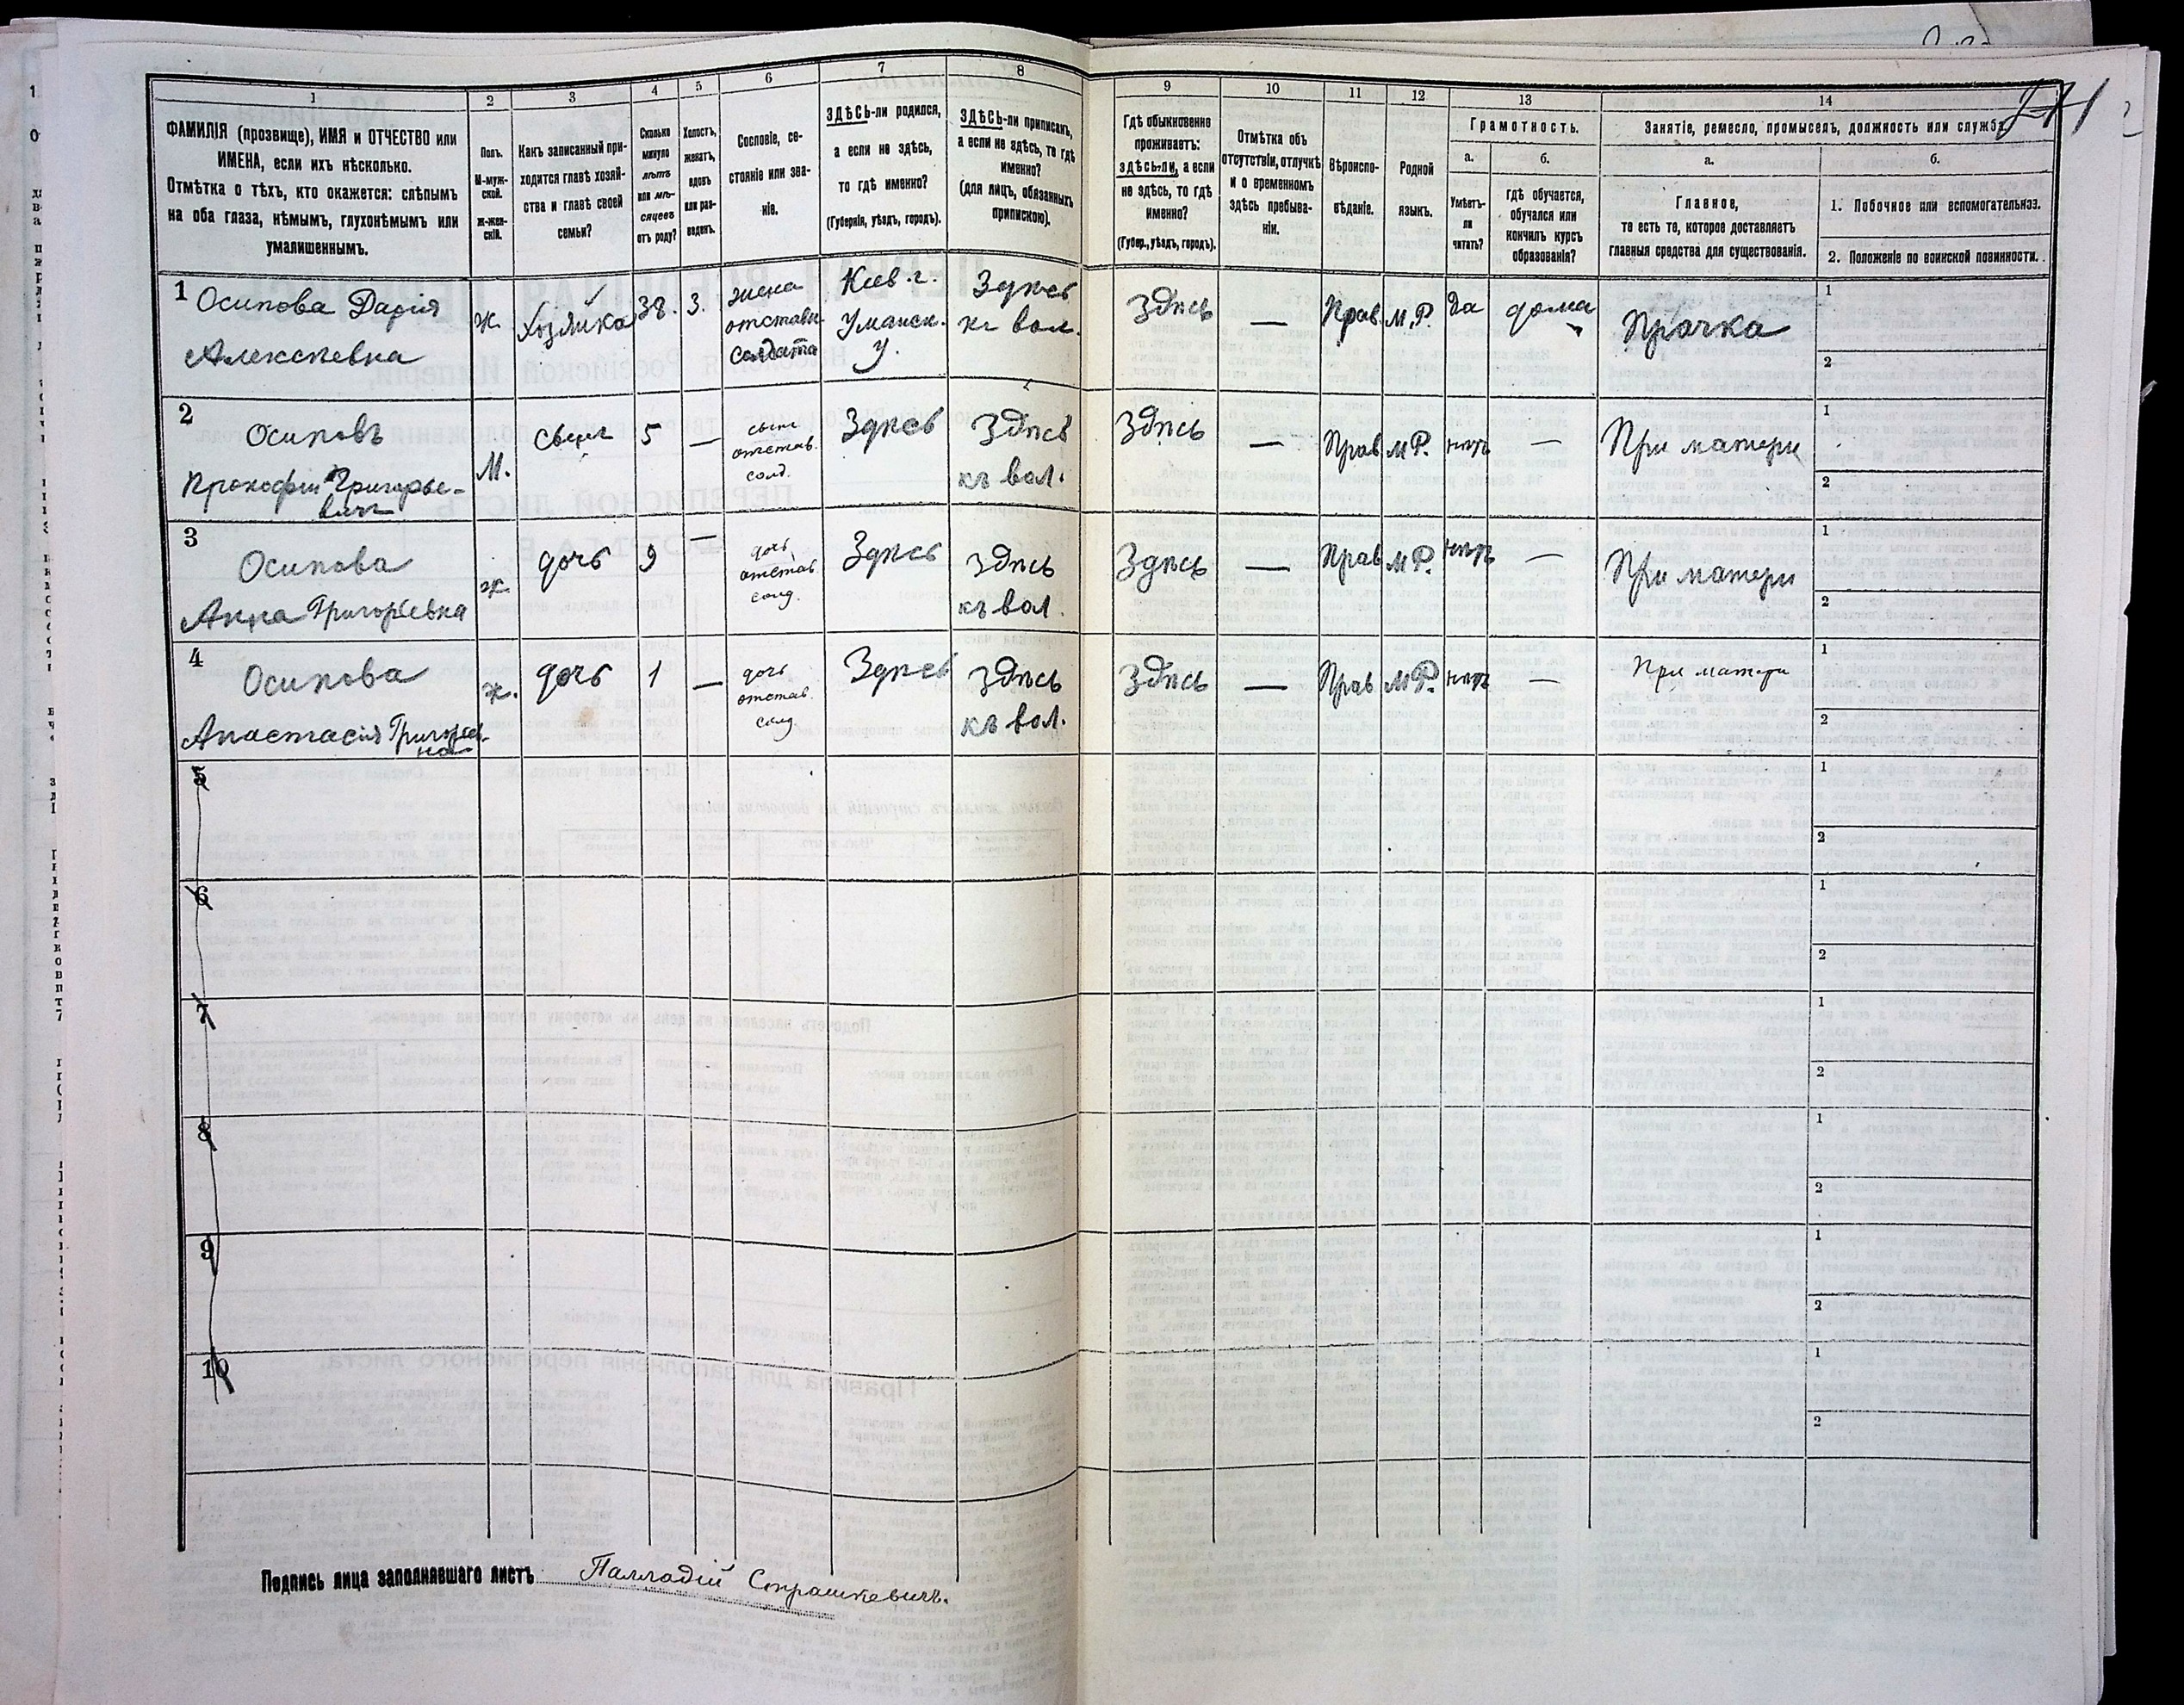 1
2
3
4
5
6
7
8
ФАМИЛІЯ (прозвище), ИМЯ и ОТЧЕСТВО или
ИМЕНА, если ихъ нѣсколько.
Отмѣтка о тѣхъ, кто окажется: слѣпымъ
на оба глаза, нѣмымъ, глухонѣмымъ или
умалишеннымъ.
Полъ.
М-муж-
ской.
Ж-жен-
скій.
Какъ записанный при-
ходится главѣ хозяй-
ства и главѣ своей
семьи?
Сколько
минуло
лѣтъ
или мѣ-
сяцевъ
отъ роду?
Холостъ,
женатъ,
вдовъ
или раз-
веденъ.
Сословіе, со-
стояніе или зва-
ніе.
ЗДѢСЬ-ли родился,
а если не здѣсь,
то гдѣ именно?
(Губернія, уѣздъ, городъ).
ЗДѢСЬ-ли приписанъ,
а если не здѣсь, то гдѣ
именно?
(для лицъ, обязанныхъ
припискою).
9
10
11
12
13
14
Гдѣ обыкновенно
проживаетъ:
здѣсь-ли, а если
не здѣсь, то гдѣ
именно?
(Губер., уѣздъ, городъ).
Отмѣтка объ
отсутствіи, отлучкѣ
и о временномъ
здѣсь пребыва-
ніи.
Вѣроиспо-
вѣданіе.
Родной
языкъ.
Грамотность.
а.
б.
Умѣетъ-
ли
читать?
гдѣ обучается,
обучался или
кончилъ курсъ
образованія?
Занятіе, ремесло, промыселъ, должность или служба
а.
б.
Главное,
то есть то, которое доставляетъ
главныя средства для существованія.
1. Побочное или вспомогательное.
2. Положеніе по воинской повинности.
1 Осипова Дарія
Алексѣевна
ж.
хозяйка
38.
З.
жена
отставн.
солдата
Кіев. г.
Уманск.
у.
Здѣсь
къ вол.
Здѣсь
—
Прав.
М.Р.
да
дома
Прачка
1
2
2 Осиповъ
Прокофій Григорье-
вичъ
М.
сынъ
5
—
сынъ
отстав.
солд.
Здѣсь
Здѣсь
къ вол.
Здѣсь
—
Прав
М Р.
нѣтъ
—
При матери
1
2
3 Осипова
Анна Григоріевна
ж.
дочь
9
—
дочь
отстав.
солд.
Здѣсь
Здѣсь
къ вол.
Здѣсь
—
Прав
М Р.
нѣтъ
—
При матери
1
2
4 Осипова
Анастасія Григорьев-
на
ж.
дочь
1
—
дочь
отстав.
солд.
Здѣсь
Здѣсь
къ вол.
Здѣсь
—
Прав
М Р.
нѣтъ
—
При матери
1
2
5
1
2
6
1
2
7
1
2
8
1
2
9
1
2
10
1
2
Подпись лица заполнявшаго листъ Палладій Страшкевичъ.